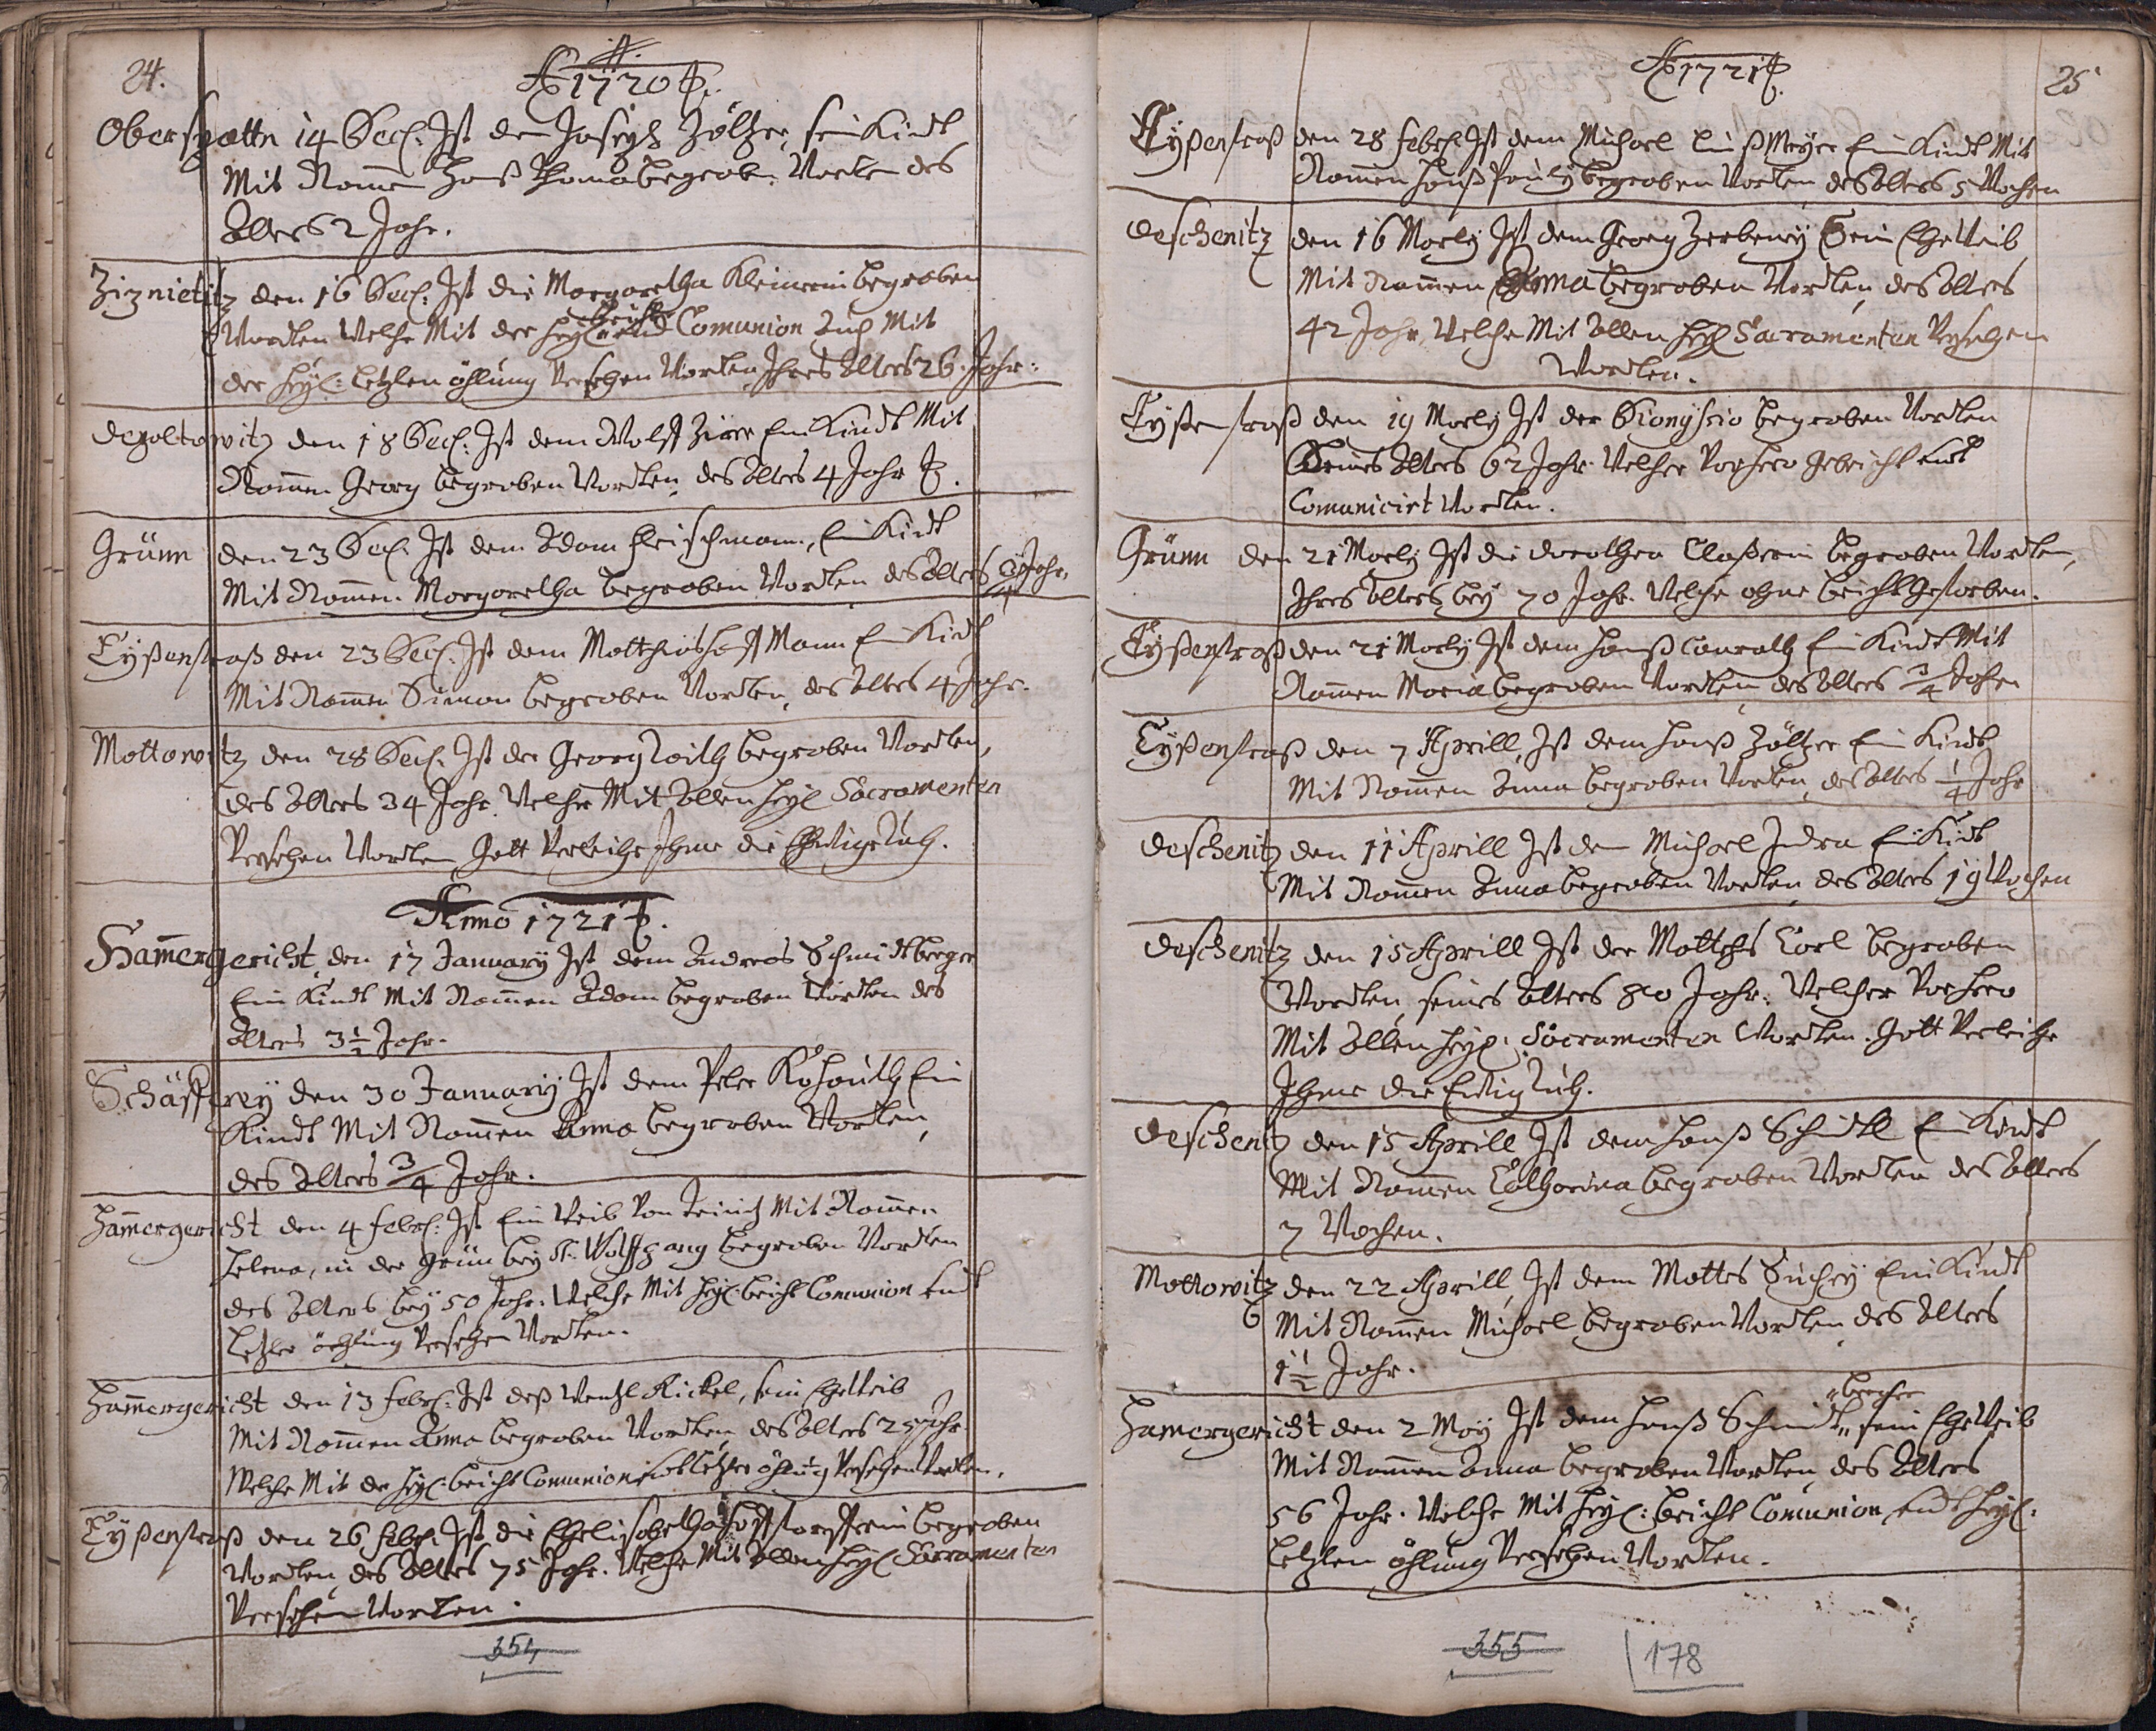 24.
A 1720
Oberspættn 14 Decl: Ist dem Joseph Zöltzer, sein Kindt
Mit Namen Hanß Thoma begraben Worten des
Alters 2 Jahr.
Ziznietitz den 16 Decl: Ist die Margaretha Kleinerin begraben
Worden Welche Mit der heyl: beicht undt Comunion Auch Mit
der heyl: letzten öhlung Versehen Worten, Ihres Alters 26. Jahr:
Depoltowitz den 18 Decl: Ist dem Wolff Zirer Ein Kindt Mit
Nammen Georg begraben Worden, des Alters 4 Jahr
Grünn den 23 Decl: Ist dem Adam fleischmann, Ein Kindt
Mit Nammen Margaretha begraben Worden des Alters 3/4 Jahr,
Eyßenstraß den 23 Decl: Ist dem Matthias hoffMann Ein Kindt
Mit Namen Simon begraben Worden, des Alters 4 Jahr.
Mottowitz den 28 Decl: Ist der Georg Voith begraben Worden,
des Alters 34 Jahr. Welcher Mit Allen heyl Sacramenten
Versehen Worden Gott Verleihe Ihme die Ewige Ruh.
Anno 1721
Hamergericht, den 17 January Ist dem Andreas Schmidtberger
Ein Kindt Mit Nammen Adam begraben Worden des
Alters 3 1/2 Jahr.
Schäfferey den 30 January Ist dem Peter Kohouth Ein
Kindt Mit Nammen Anna begraben Worten,
des Alters 3/4 Jahr.
Hamergericht den 4 febrl: Ist Ein Weib Von Teinitz Mit Nammen
Helena, in der Grün bey St. Wolffgang begraben Worden
des Alters bey 50 Jahr. Welche Mit heyl: beicht Comunion undt
Letzter öhlung Versehen Worden.
Hammergericht den 13 febrl: Ist deß Wentzl Nickel, sein Eheweib
Mit Nammen Anna begraben Worden, des Alters 25 Jahr
Welche Mit der heyl: beicht Comunion undt letzter öhlung Versehen Worden.
Eyßenstraß den 26 febrl: Ist die Elisabetha begraben
Worden, des Alters 75 Jahr. Welche Mit Allen heyl Sacramenten
Versehen Worden.
354
A 1721
25
Eyßenstraß den 28 febrl: Ist dem Michael LinßMeyer Ein Kindt Mit
Nammen Hanß Pauly begraben Worden, des Alters 5 Wochen
Deschenitz den 16 Marty Ist dem Georg Zerbeny Sein EheWeib
Mit Nammen Anna begraben Worden, des Alters
42 Jahr, Welche Mit Allen heyl Sacramenten Versehen
Worden.
Eyßenstraß den 19 Marty Ist der Dionysio begraben Worden
Seines Alters 62 Jahr. Welcher Vorhero gebeicht undt
Comuniciret Worden.
Grünn den 21 Marty Ist die Dorothea Claßerin begraben Worden,
Ihres Alters bey 70 Jahr. Welche ohne beicht Gestorben.
Eyßenstraß den 21 Marty Ist dem Hanß Conrath Ein Kindt Mit
Nammen Maria begraben Worden, des Alters 3/4 Jahr
Eyßenstraß den 7 Aprill, Ist dem Hanß Zöltzer Ein Kindt
Mit Nammen Anna begraben Worden, des Alters 1/4 Jahr
Deschenitz den 11 Aprill Ist dem Michael Indra Ein Kindt
Mit Nammen Anna begraben Worden, des Alters 19 Wochen
Deschenitz den 15 Aprill Ist der Mattehs Carl begraben
Worden, seines Alters 80 Jahr: Welcher Vorhero
Mit Allen heyl: Sacramenten Worden. Gott Verleihe
Ihme die Ewig Ruh.
Deschenitz den 15 Aprill Ist dem Hanß Schmidtl Ein Kindt
Mit Nammen Catharina begraben Worden des Alters
7 Wochen.
Mottowitz den 22 Aprill, Ist dem Mattes Suchey Ein Kindt
Mit Nammen Michael begraben Worden des Alters
1 1/2 Jahr.
Hamergericht den 2 May Ist dem Hanß Schmidt„berger sein Eheweib
Mit Nammen Anna begraben Worden, des Alters
56 Jahr. Welche Mit heyl: beicht Comunion, undt heyl:
letzten öhlung Versehen Worden.
355
178